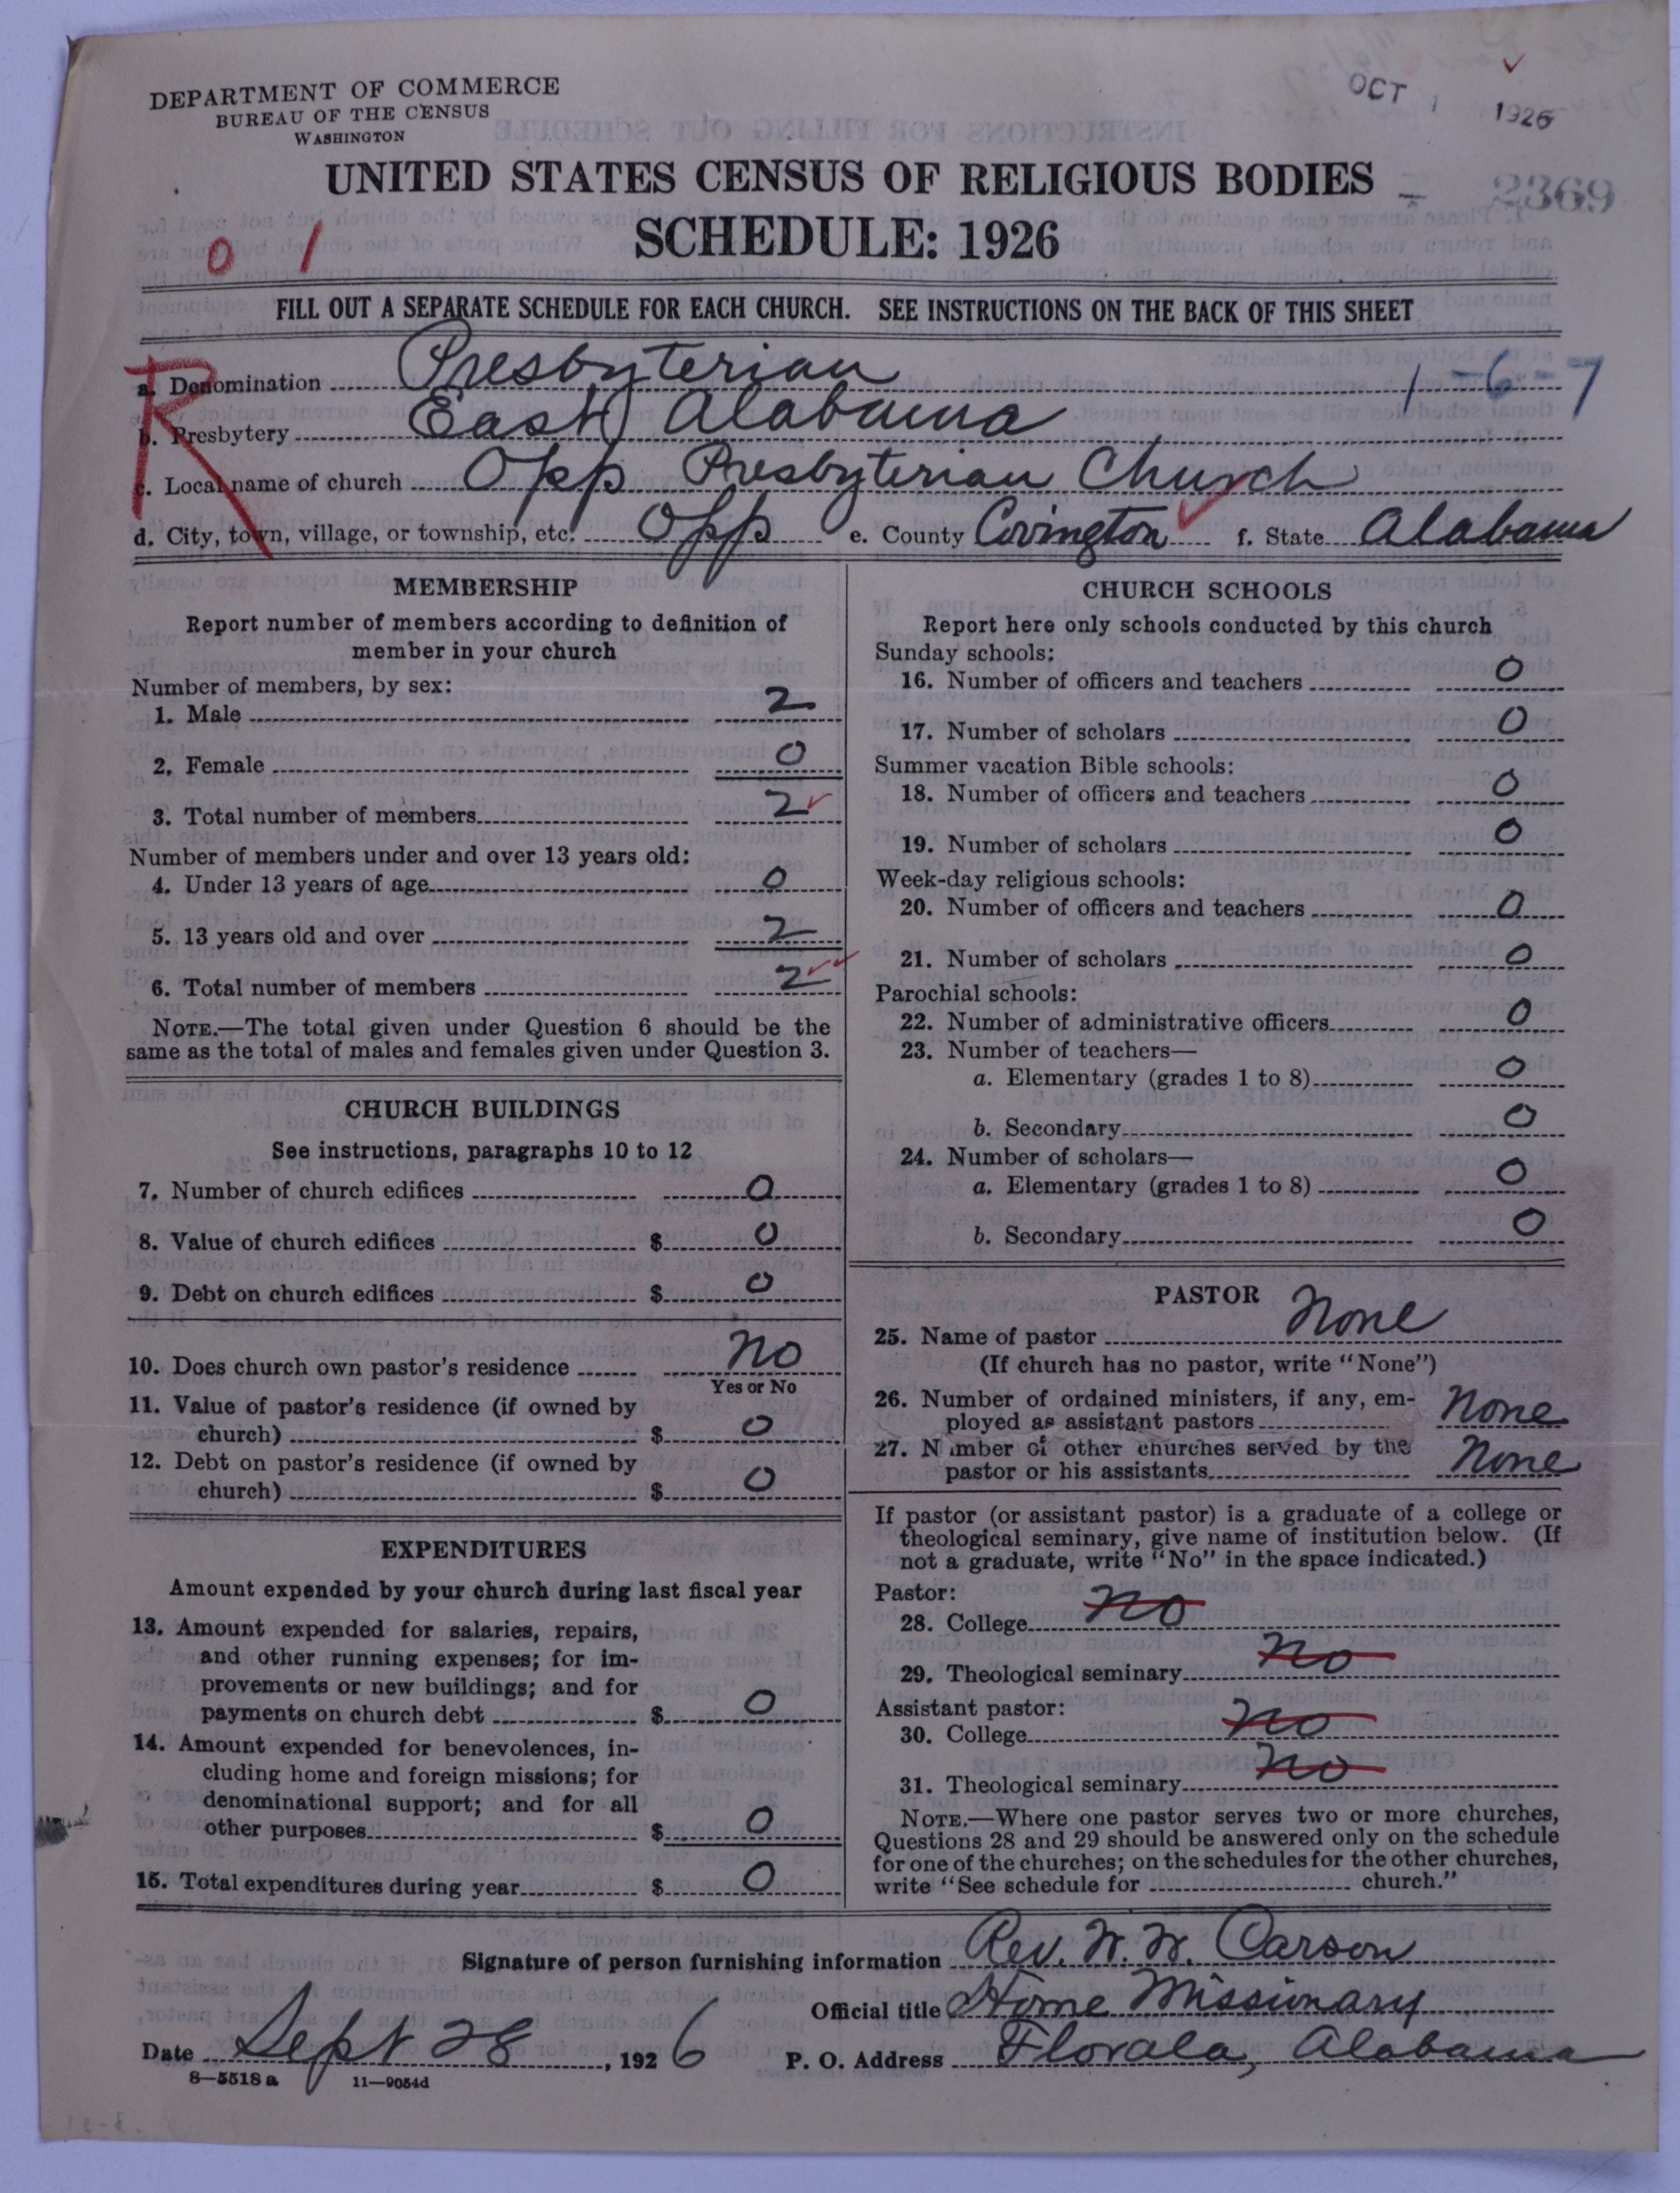 DEPARTMENT OF COMMERCE
BUREAU OF THE CENSUS
WASHINGTON
OCT 1 1926
UNITED STATES CENSUS OF RELIGIOUS BODIES
2369
SCHEDULE: 1926
0 1
FILL OUT A SEPARATE SCHEDULE FOR EACH CHURCH. SEE INSTRUCTIONS ON THE BACK OF THIS SHEET
R
a. Denomination Presbyterian 1-6-7
b. Presbytery East Alabama
c. Local name of church Opp Presbyterian Church
d. City, town, village, or township, etc. Opp e. County Covington f. State Alabama
MEMBERSHIP
Report number of members according to definition of
member in your church
Number of members, by sex:
1. Male 2
2. Female 0
3. Total number of members 2
Number of members under and over 13 years old:
4. Under 13 years of age 0
5. 13 years old and over 2
6. Total number of members 2
NOTE.—The total given under Question 6 should be the
same as the total of males and females given under Question 3.
CHURCH BUILDINGS
See instructions, paragraphs 10 to 12
7. Number of church edifices 0
8. Value of church edifices $ 0
9. Debt on church edifices $ 0
10. Does church own pastor's residence No
Yes or No
11. Value of pastor's residence (if owned by
church) $ 0
12. Debt on pastor's residence (if owned by
church) $ 0
EXPENDITURES
Amount expended by your church during last fiscal year
13. Amount expended for salaries, repairs,
and other running expenses; for im-
provements or new buildings; and for
payments on church debt $ 0
14. Amount expended for benevolences, in-
cluding home and foreign missions; for
denominational support; and for all
other purposes $ 0
15. Total expenditures during year $ 0
CHURCH SCHOOLS
Report here only schools conducted by this church
Sunday schools:
16. Number of officers and teachers 0
17. Number of scholars 0
Summer vacation Bible schools:
18. Number of officers and teachers 0
19. Number of scholars 0
Week-day religious schools:
20. Number of officers and teachers 0
21. Number of scholars 0
Parochial schools:
22. Number of administrative officers 0
23. Number of teachers—
a. Elementary (grades 1 to 8) 0
b. Secondary 0
24. Number of scholars—
a. Elementary (grades 1 to 8) 0
b. Secondary 0
PASTOR
25. Name of pastor None
(If church has no pastor, write "None")
26. Number of ordained ministers, if any, em-
ployed as assistant pastors None
27. Number of other churches served by the
pastor or his assistants None
If pastor (or assistant pastor) is a graduate of a college or
theological seminary, give name of institution below. (If
not a graduate, write "No" in the space indicated.)
Pastor:
28. College No
29. Theological seminary No
Assistant pastor:
30. College No
31. Theological seminary No
NOTE.—Where one pastor serves two or more churches,
Questions 28 and 29 should be answered only on the schedule
for one of the churches; on the schedules for the other churches,
write "See schedule for church."
Signature of person furnishing information Rev. W. W. Carson
Official title Home Missionary
Date Sept 28, 1926 P. O. Address Florala, Alabama
8—5518 a 11—9054d